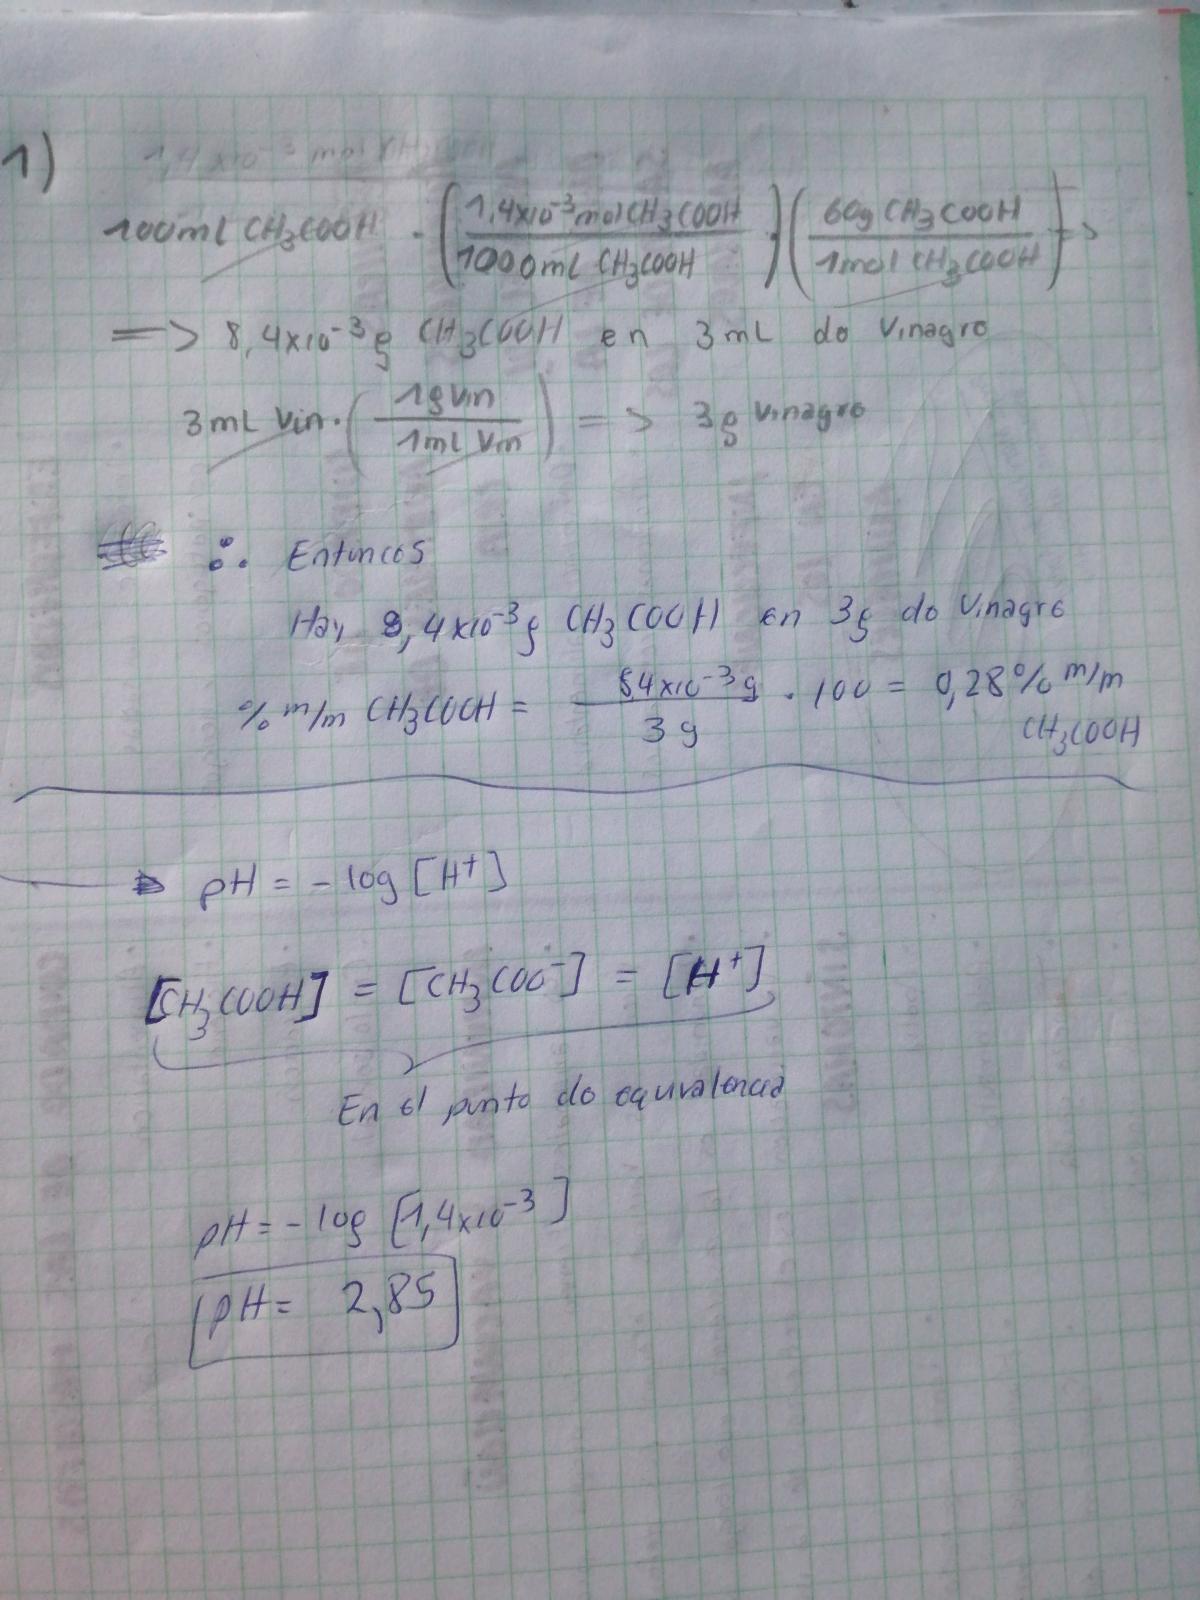 1)
1,4x10⁻³ mol CH₃COOH
100mL CH₃COOH · (1,4x10⁻³ mol CH₃COOH / 1000mL CH₃COOH) (60g CH₃COOH / 1mol CH₃COOH) =>
=> 8,4x10⁻³g CH₃COOH en 3mL do Vinagro
3mL Vin. (1g Vin / 1mL Vin) => 3g Vinagro
∴ Entonces
Hay 8,4x10⁻³g CH₃COOH en 3g do Vinagre
% m/m CH₃COOH = 8,4x10⁻³g / 3g · 100 = 0,28% m/m
CH₃COOH
pH = -log [H⁺]
[CH₃COOH] = [CH₃COO⁻] = [H⁺]
En el punto do equivalencia
pH = -log [1,4x10⁻³]
pH = 2,85